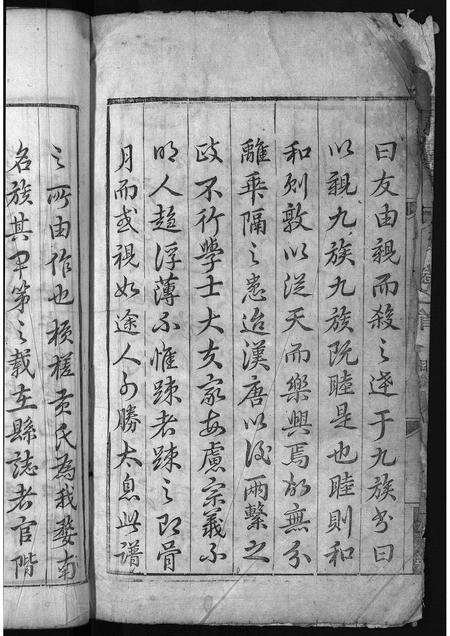 曰友由親而殺之達于九族書曰
以親九族九族既睦是也睦則和
和則敦以從天而樂興焉故無分
離乖隔之患迨漢唐以後兩繫之
政不行學士大夫家每慮宗義不
明人趨浮薄不惟踈者踈之即骨
月而或視如途人可勝太息此譜
之所由作也橫槎黃氏為我婺南
名族其甲第之載在縣誌者官階